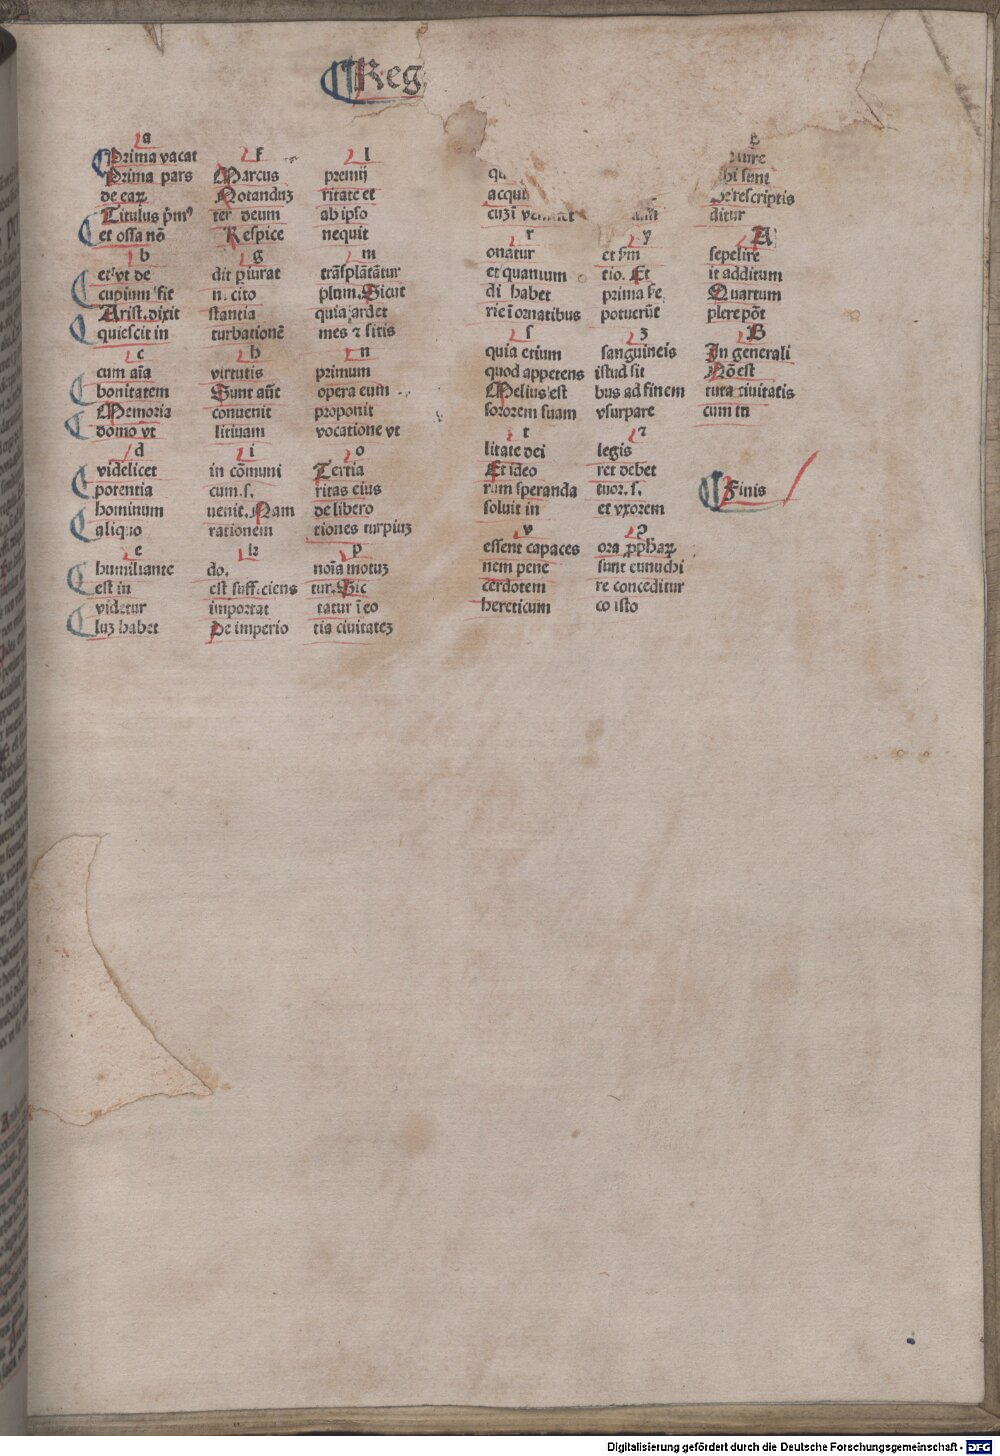 Reg
a
Prima vacat
Prima pars
de eaꝝ
Titulus p̄mꝰ
et ossa nō
b
et vt de
cupium sit
Arist. dixit
quiescit in
c
cum aīa
bonitatem
Memoria
domo vt
d
videlicet
potentia
hominum
aliquo
e
humiliante
est in
videtur
luꝫ habet
f
Marcus
Notanduꝫ
ter deum
Respice
g
dit ꝑiurat
n. cito
stantia
turbationē
h
virtutis
Sunt aūt
conuenit
litiuam
i
in cōmuni
cum. s.
uenit. Nam
rationem
k
do.
est sufficiens
importat
De imperio
l
premij
ritate et
ab ipso
nequit
m
trāsplātātur
plam. Sicut
quia ardet
mes ⁊ sitis
n
primum
opera eum
proponit
vocatione vt
o
Tertia
ritas eius
de libero
tiones turpiuꝫ
p
noīs motuꝫ
tur. Sic
tatur ī eo
tis ciuitateꝫ
qu
acqui
cuꝫ ī
r
onatur
et quanum
di habet
rie ī ornatibus
s
quia etium
quod appetens
Melius est
sororem suam
t
litate dei
Et ideo
rum speranda
soluit in
v
essent capaces
nem pene
cerdotem
hereticum
y
et sm
tio. Et
prima se
potuerūt
z
sanguineis
istud sit
bus ad finem
vsurpare
⁊
legis
ret debet
tuor. s.
et vxorem
ꝯ
ora ꝓpħaꝝ
sunt eunuchi
re conceditur
co isto
iure
bi sunt
De rescriptis
ditur
A
sepelire
it additum
Quartum
plere pōt
B
In generali
Nō est
tuta ciuitatis
cum in
Finis
Digitalisierung gefördert durch die Deutsche Forschungsgemeinschaft - DFG